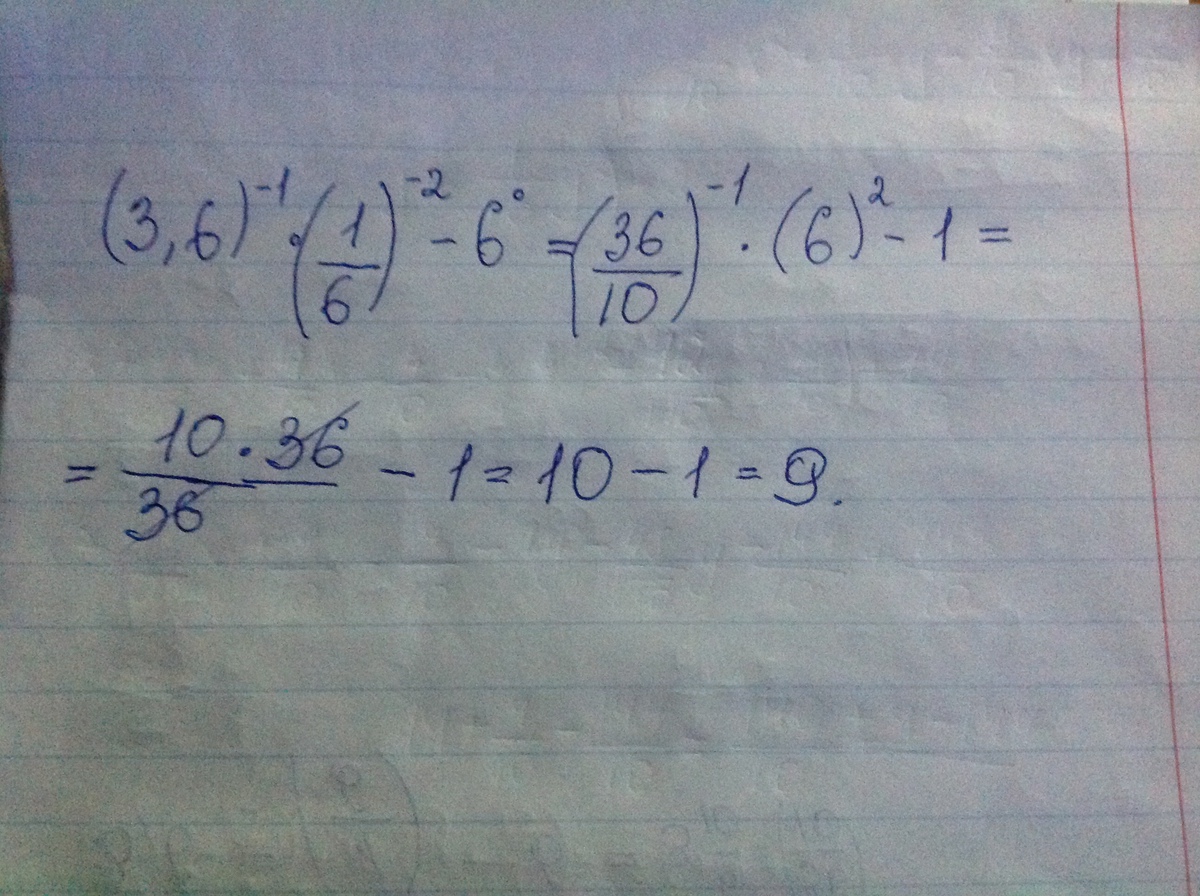 (3,6)⁻¹·(1/6)⁻² - 6° = (36/10)⁻¹ · (6)² - 1 =
= 10·36/36 - 1 = 10 - 1 = 9.